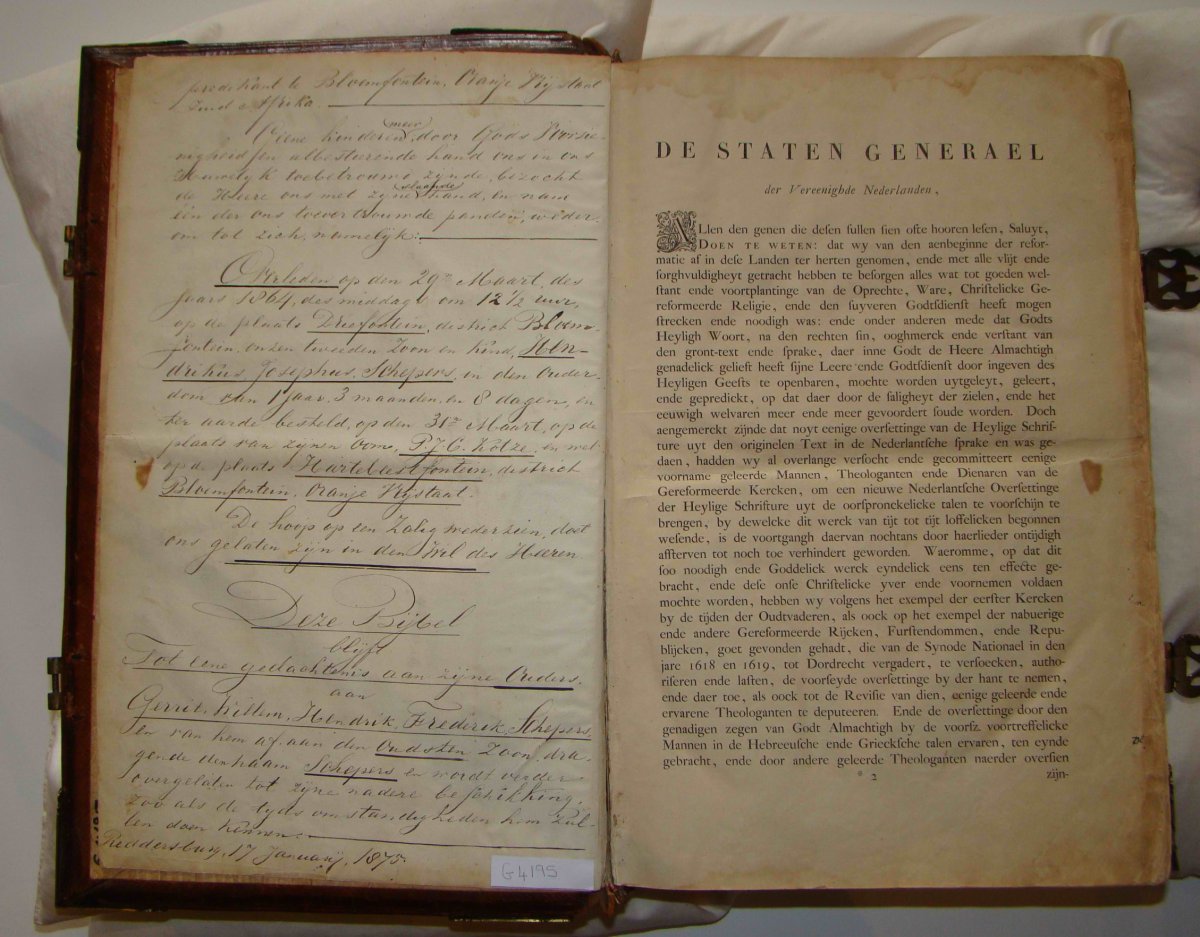 predikant te Bloemfontein, Oranje Vrijstaat
Zuid Afrika.
Geene kinderen meer door Gods Voorzie-
nigheid en albestierende hand ons in ons
Huwelyk toebetrouwd zynde, bezocht
de Heere ons met zyne slaande hand, en nam
één der ons toevertrouwde panden, weder-
om tot zich, namelijk:
Overleden op den 29en Maart, des
jaars 1864, des middags om 12½ uur,
op de plaats Driefontein, district Bloem-
fontein, onzen tweeden Zoon en Kind, Hen-
drikus Josephus Schepers, in den Ouder-
dom van 1 jaar, 3 maanden, en 8 dagen, en
ter aarde besteld, op den 31en Maart, op de
plaats van zynen Oom, P.J.C. Kotze, en wel
op de plaats Hartebeestfontein, district
Bloemfontein, Oranje Vrystaat.
De hoop op een Zalig wederzien, doet
ons gelaten zijn in den Wil des Heeren
Deze Bijbel
blijft
Tot eene gedachtenis aan zijne Ouders,
aan
Gerrit, Willem, Hendrik, Frederik, Schepers,
en van hem af aan den Oudsten Zoon, dra-
gende den naam Schepers en wordt verder
overgelaten tot zijne nadere beschikking,
zoo als de tyds omstandigheden hem zul-
len doen kennen.
Reddersburg, 17 Januarij, 1875.
G4195
DE STATEN GENERAEL
der Vereenighde Nederlanden,
ALlen den genen die desen sullen sien ofte hooren lesen, Saluyt,
DOEN TE WETEN: dat wy van den aenbeginne der refor-
matie af in dese Landen ter herten genomen, ende met alle vlijt ende
sorghvuldigheyt getracht hebben te besorgen alles wat tot goeden wel-
stant ende voortplantinge van de Oprechte, Ware, Christelicke Ge-
reformeerde Religie, ende den suyveren Godtsdienst heeft mogen
strecken ende noodigh was: ende onder anderen mede dat Godts
Heyligh Woort, na den rechten sin, ooghmerck ende verstant van
den gront-text ende sprake, daer inne Godt de Heere Almachtigh
genadelick gelieft heeft sijne Leere ende Godtsdienst door ingeven des
Heyligen Geests te openbaren, mochte worden uytgeleyt, geleert,
ende gepredikt, op dat daer door de saligheyt der zielen, ende het
eeuwigh welvaren meer ende meer gevoordert soude worden. Doch
aengemerckt zijnde dat noyt eenige oversettinge van de Heylige Schrif-
ture uyt den originelen Text in de Nederlantsche sprake en was ge-
daen, hadden wy al overlange versocht ende gecommitteert eenige
voorname geleerde Mannen, Theologanten ende Dienaren van de
Gereformeerde Kercken, om een nieuwe Nederlantsche Oversettinge
der Heylige Schrifture uyt de oorspronckelicke talen te voorschijn te
brengen, by dewelcke dit werck van tijt tot tijt loffelicken begonnen
wesende, is de voortgangh daervan nochtans door haerlieder ontijdigh
afsterven tot noch toe verhindert geworden. Waeromme, op dat dit
soo noodigh ende Goddelick werck eyndelick eens ten effecte ge-
bracht, ende dese onse Christelicke yver ende voornemen voldaen
mochte worden, hebben wy volgens het exempel der eerster Kercken
by de tijden der Oudtvaderen, als oock op het exempel der nabuerige
ende andere Gereformeerde Rijcken, Furstendommen, ende Repu-
blijcken, goet gevonden gehad, die van de Synode Nationael in den
jare 1618 en 1619, tot Dordrecht vergadert, te versoecken, autho-
riseren ende lasten, de voorseyde oversettinge by der hant te nemen,
ende daer toe, als oock tot de Revisie van dien, eenige geleerde ende
ervarene Theologanten te deputeeren. Ende de oversettinge door den
genadigen zegen van Godt Almachtigh by de voorsz. voortreffelicke
Mannen in de Hebreeusche ende Griecksche talen ervaren, ten eynde
gebracht, ende door andere geleerde Theologanten naerder oversien
* 2
zijn-